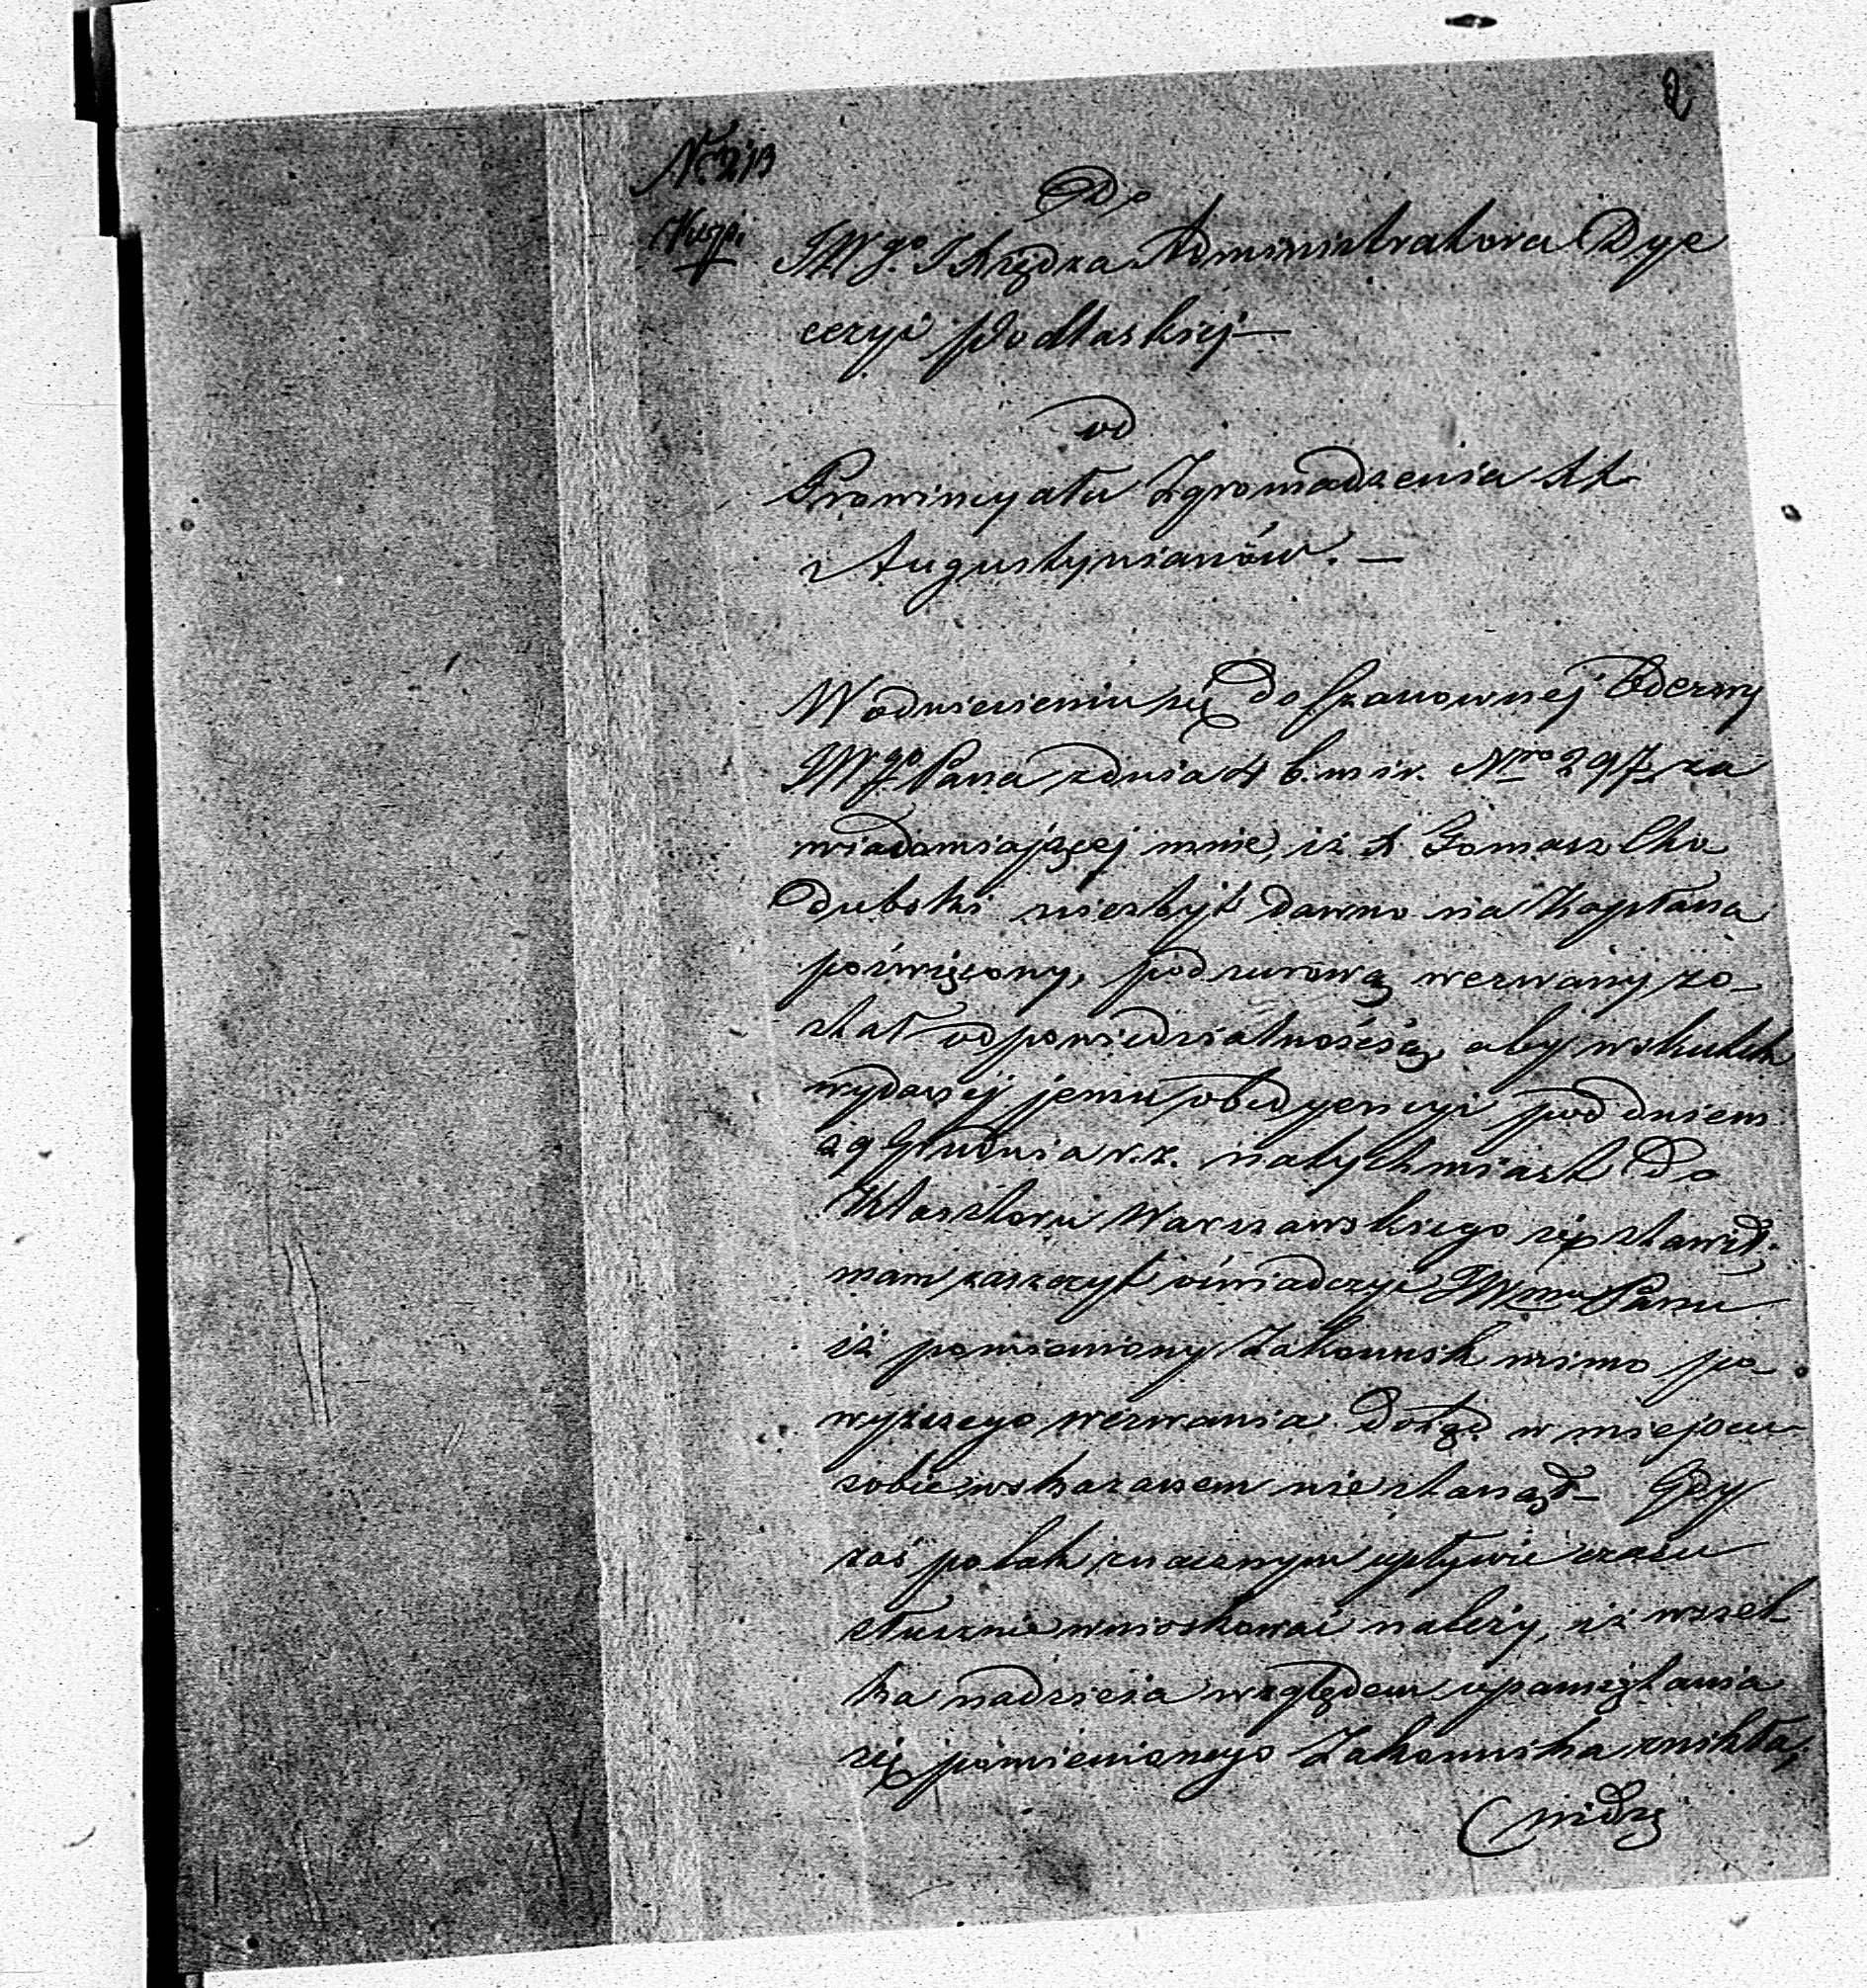 2
Do
JWgo. JXiędza Administratora Dye
cezyi Podlaskiej—
od
Prowincyatu Zgromadzenia XX
Augustynianów. —
W odniesieniu się do szanownej Odezwy
JWgo Pana z dnia 4 b. m i r. Nro 297, za
wiadamiającej mnie, iż X. Tomasz Cho
dubski niezbyt dawno na Kapłana
poświęcony, pod surową wezwany zo-
stał odpowiedzialnością, aby wskutek
wydanej jemu obedyencyi pod dniem
29 Grudnia r. z. natychmiast do
Klasztoru Warszawskiego się stawił;
mam zaszczyt oświadczyć JWmu Panu
iż pomieniony Zakonnik mimo po-
wyższego wezwania dotąd w miejscu
sobie wskazanem nie stanął— Gdy
zaś po tak znacznym upływie czasu
słusznie wnioskować należy, iż wszel
ka nadzieia względem upamiętania
się pomienionego Zakonnika znikła,
widzę